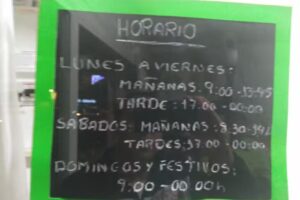 HORARIO
LUNES A VIERNES:
MAÑANAS: 9:00-13:45
TARDE: 17:00-00:00
SABADOS: MAÑANAS: 8:30-14h
TARDES: 17:00-00:00
DOMINGOS Y FESTIVOS:
9:00-00:00h